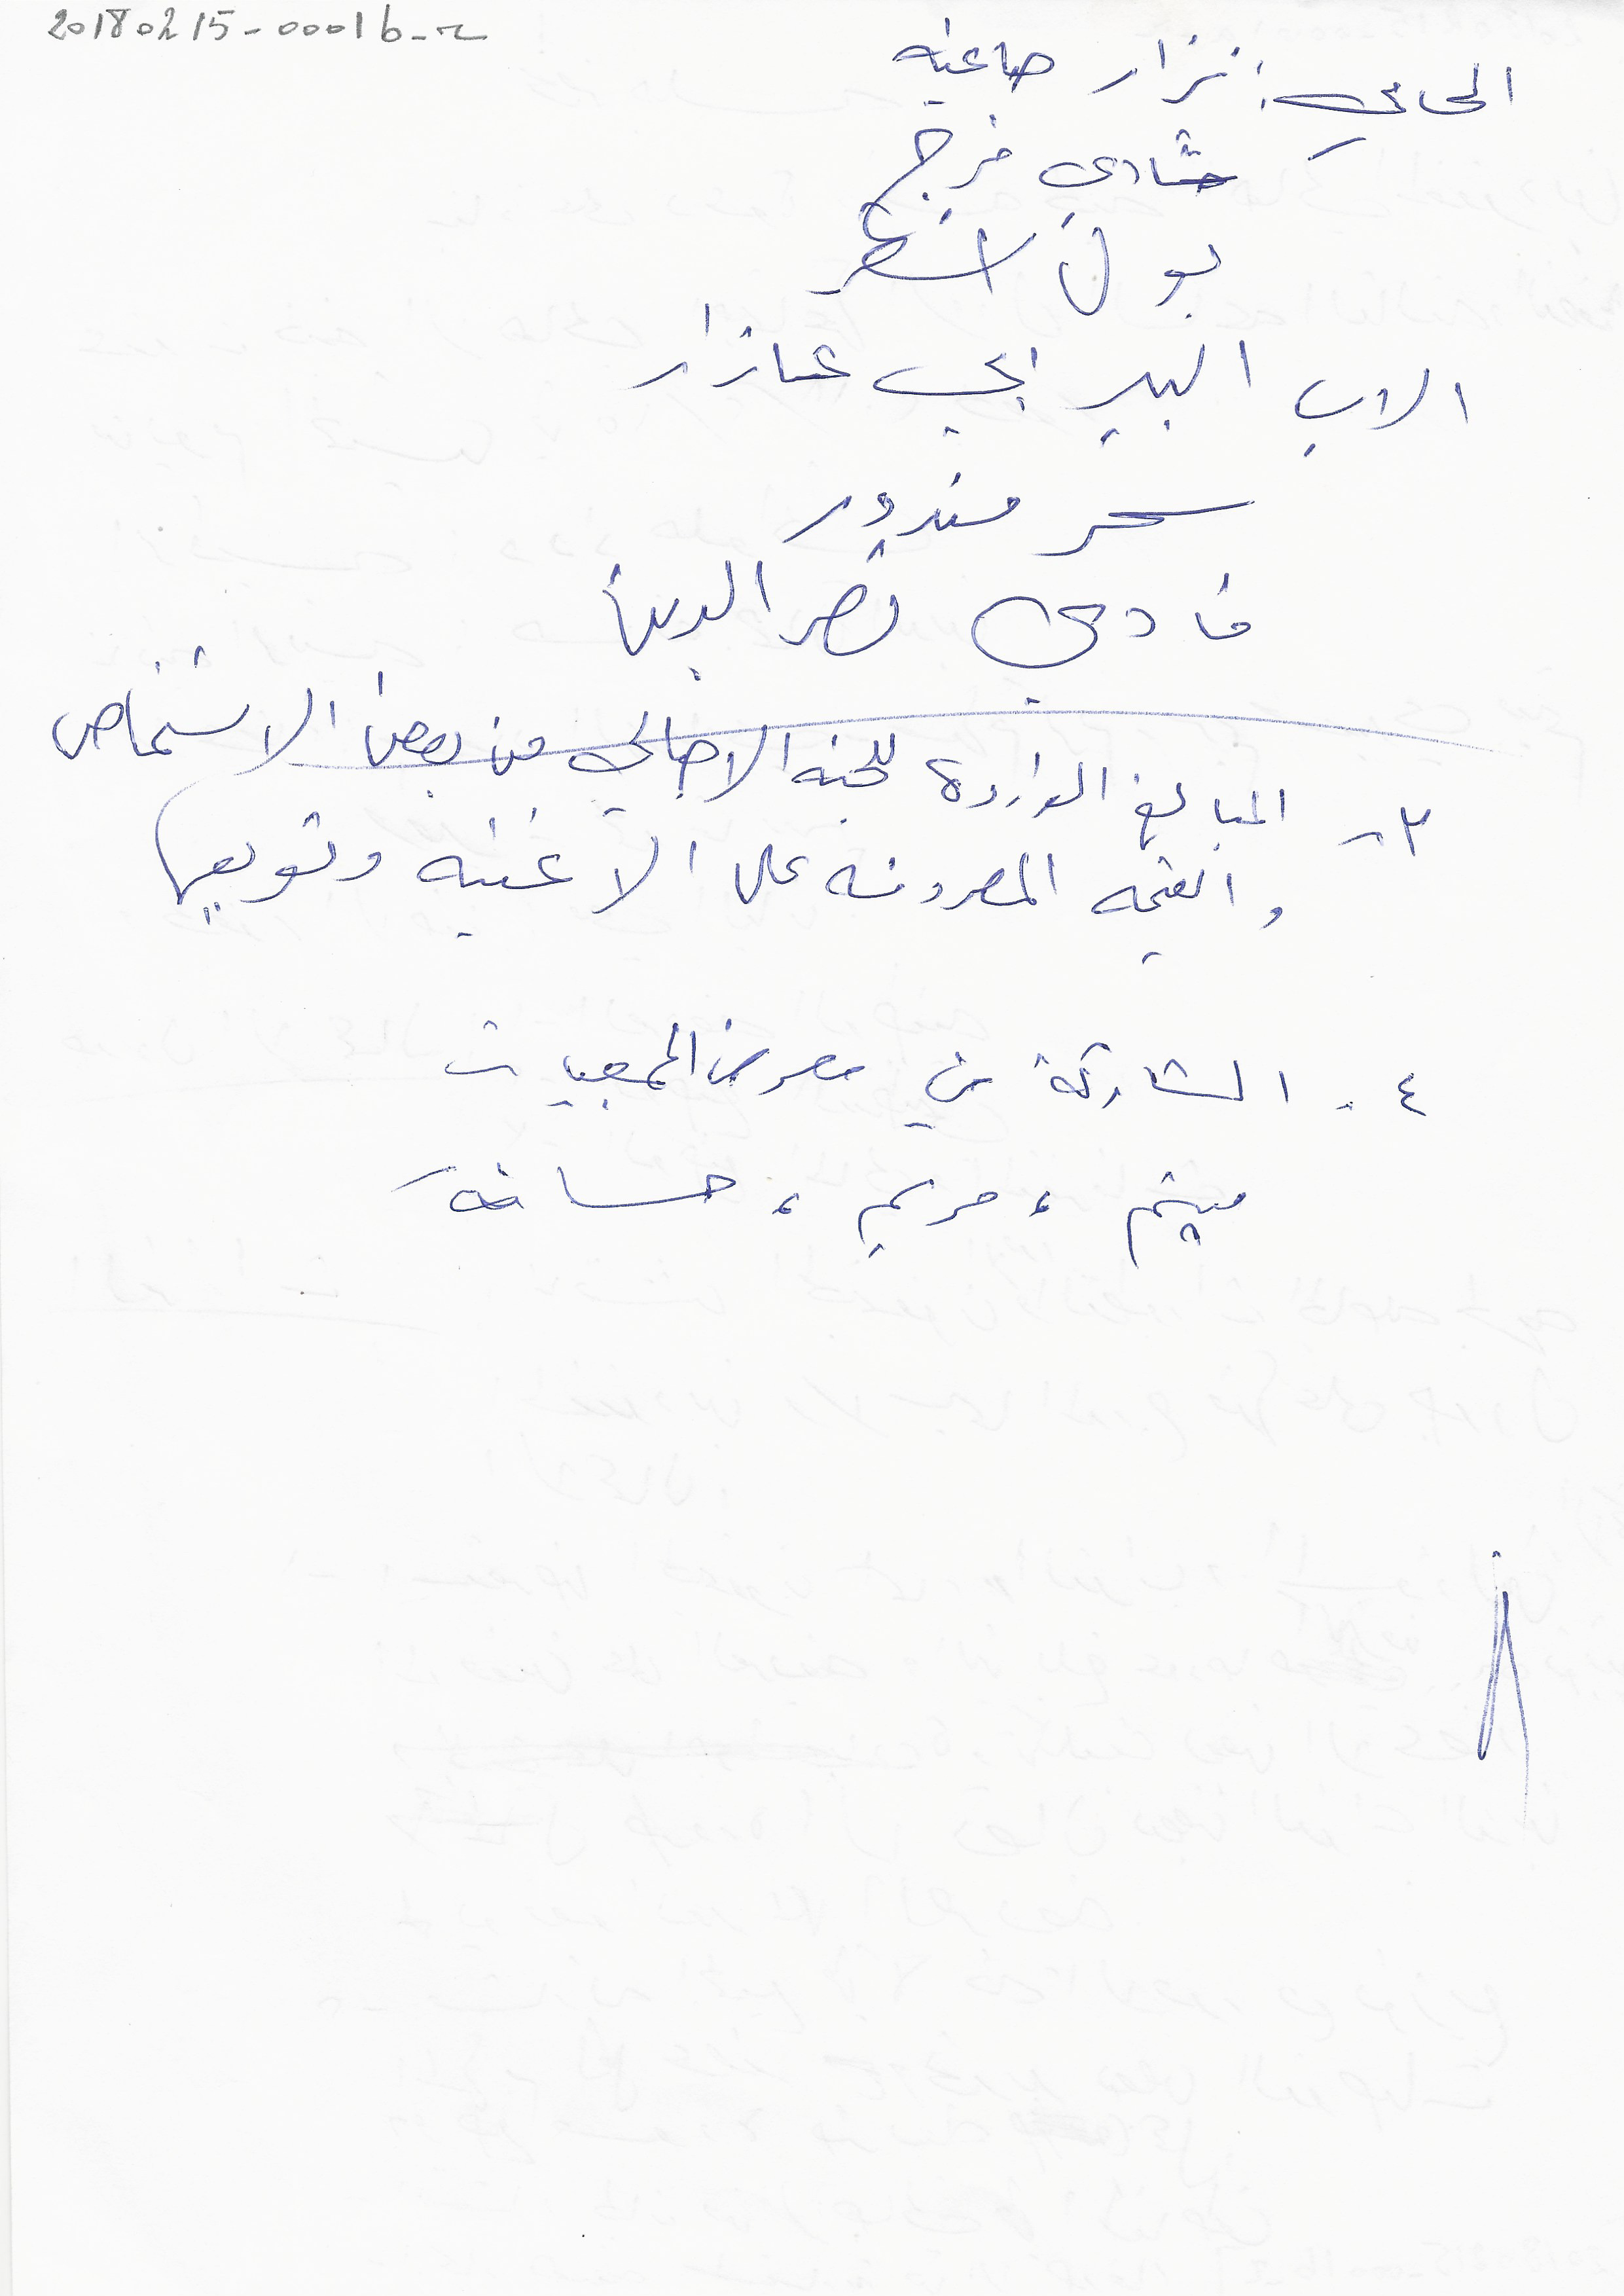 20180215-00016-r
المحامي: نزار صاغيه
شادي فرج
بول اشقر
الاب البير ابي عازار
سحر مندور
فادي نصر الدين
٣- المبالغ الواردة للجنه الاهالي من بعض الاشخاص
والقيمه المصروفه على الاغنيه وتوبعها
٤. المشاركة في معرض الجمعيات
ميثم، مريم، حسانه